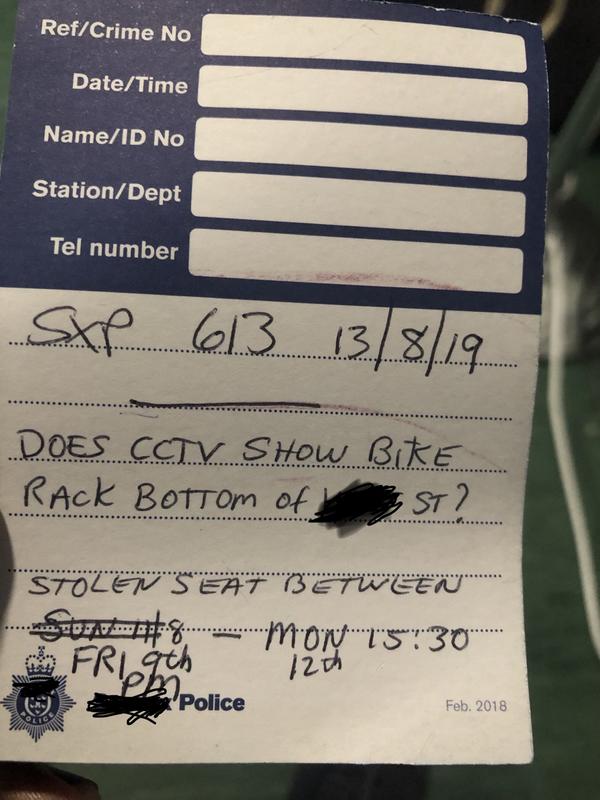 Ref/Crime No
Date/Time
Name/ID No
Station/Dept
Tel number
SXP 613 13/8/19
DOES CCTV SHOW BIKE
RACK BOTTOM of ST?
STOLEN SEAT BETWEEN
SUN 11/8 – MON 15:30
FRI 9th 12th
PM
POLICE
Police
Feb. 2018